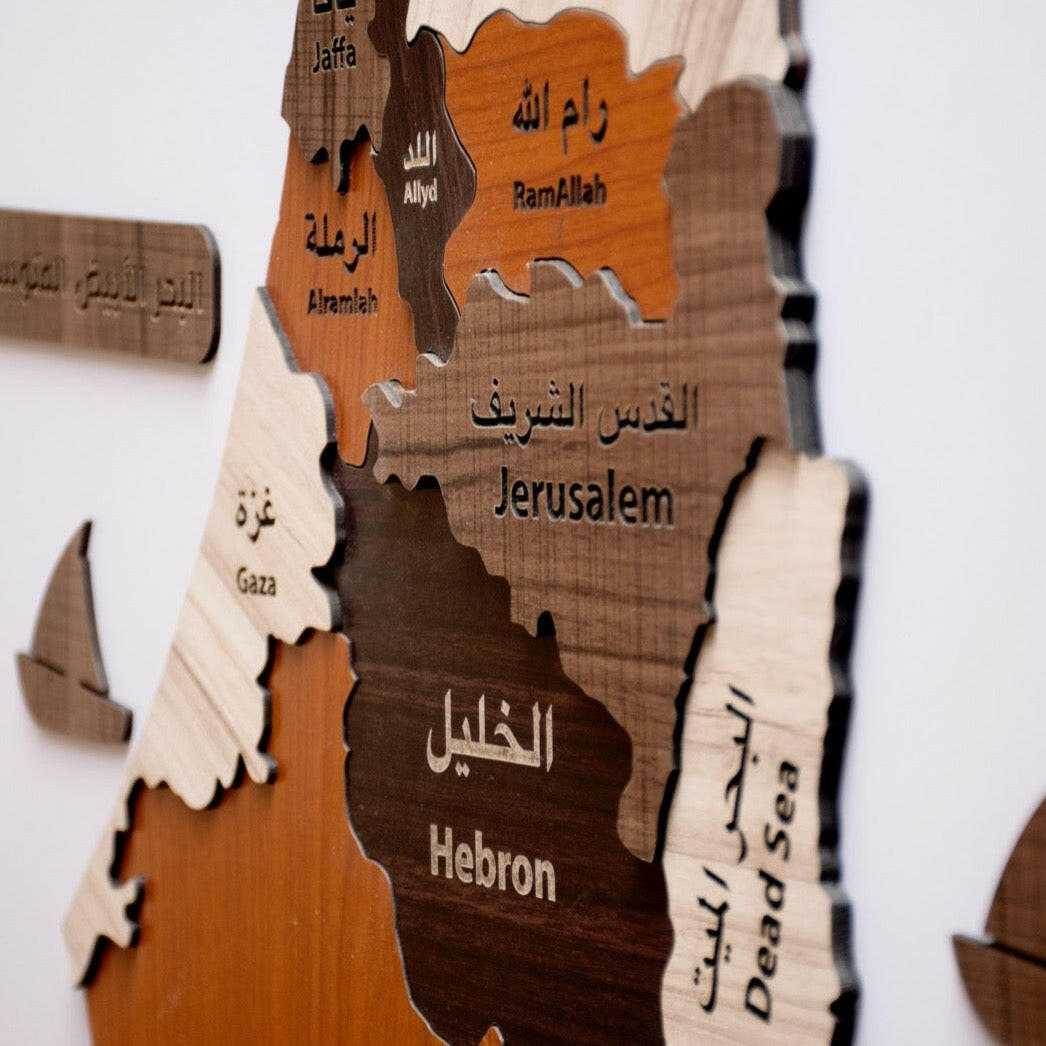 يافا
Jaffa
اللد
Allyd
رام الله
RamAllah
الرملة
Alramlah
البحر الأبيض المتوس
القدس الشريف
Jerusalem
غزة
Gaza
الخليل
Hebron
البحر الميت
Dead Sea